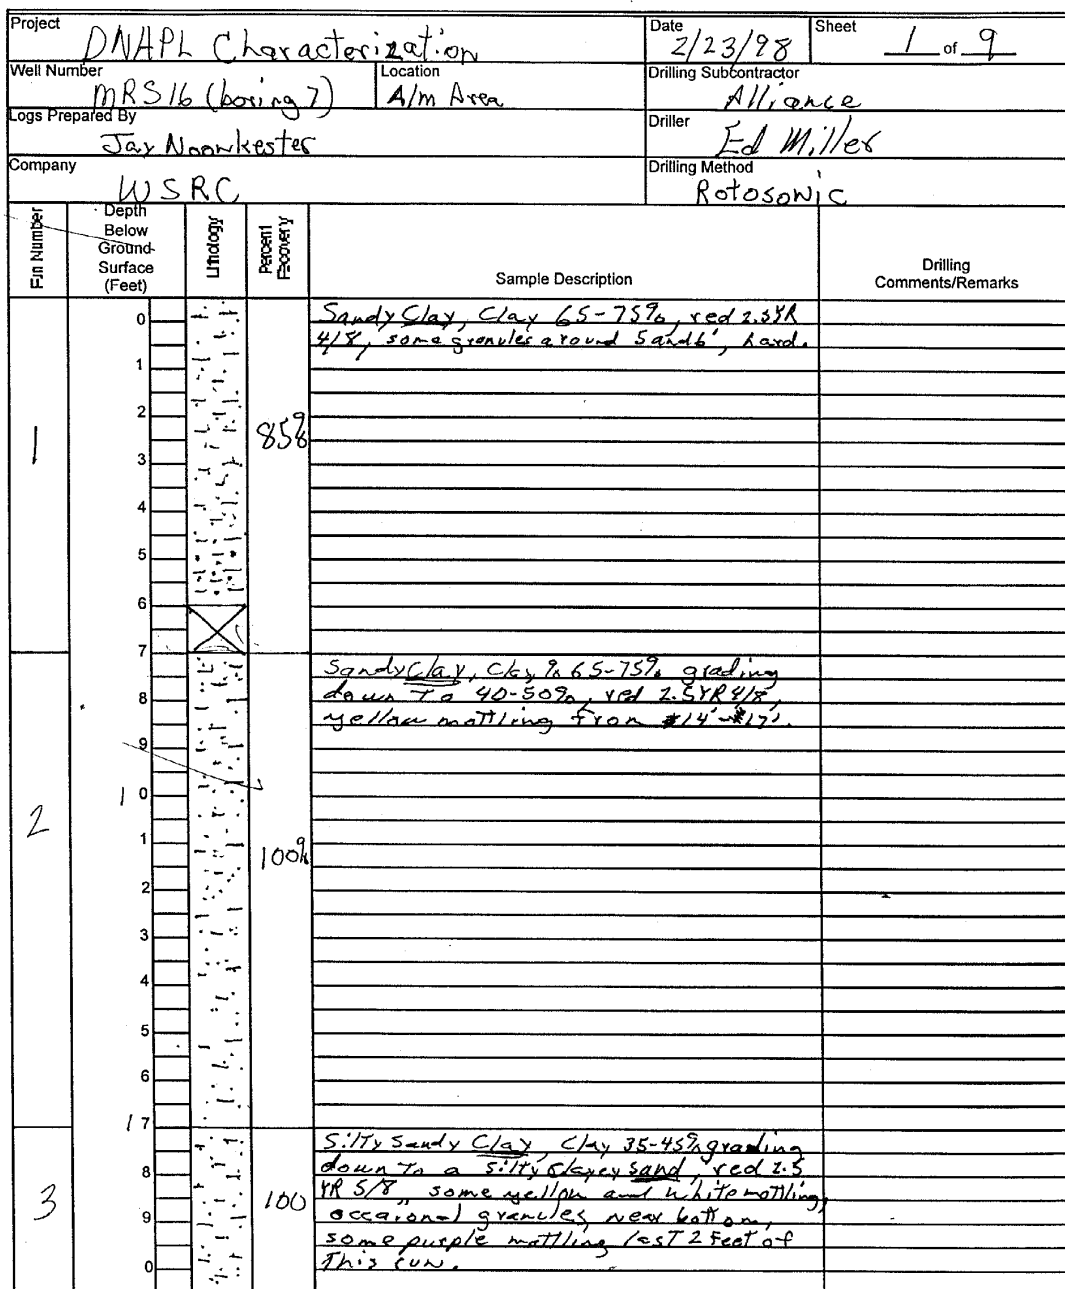 Project
DNAPL Characterization
Date
2/23/98
Sheet
1 of 9
Well Number
MRS16 (boring 7)
Location
A/m Area
Drilling Subcontractor
Alliance
Logs Prepared By
Jay Noonkester
Driller
Ed Miller
Company
WSRC
Drilling Method
Rotosonic
Run Number
Depth
Below
Ground
Surface
(Feet)
Lithology
Percent
Recovery
Sample Description
Drilling
Comments/Remarks
0
Sandy Clay, Clay 65-75%, red 2.5YR
4/8, some granules around 5 and 6', hard.
1
2
1
85%
3
4
5
6
7
Sandy Clay, Clay % 65-75% grading
8
down To 40-50%, red 2.5YR 4/8,
yellow mottling from 14'-17'.
9
10
2
1
100%
2
3
4
5
6
17
Silty Sandy Clay, Clay 35-45% grading
8
down To a silty clayey sand, red 2.5
YR 5/8, some yellow and white mottling,
3
100
occaional granules near bottom,
9
some purple mottling last 2 feet of
0
This run.